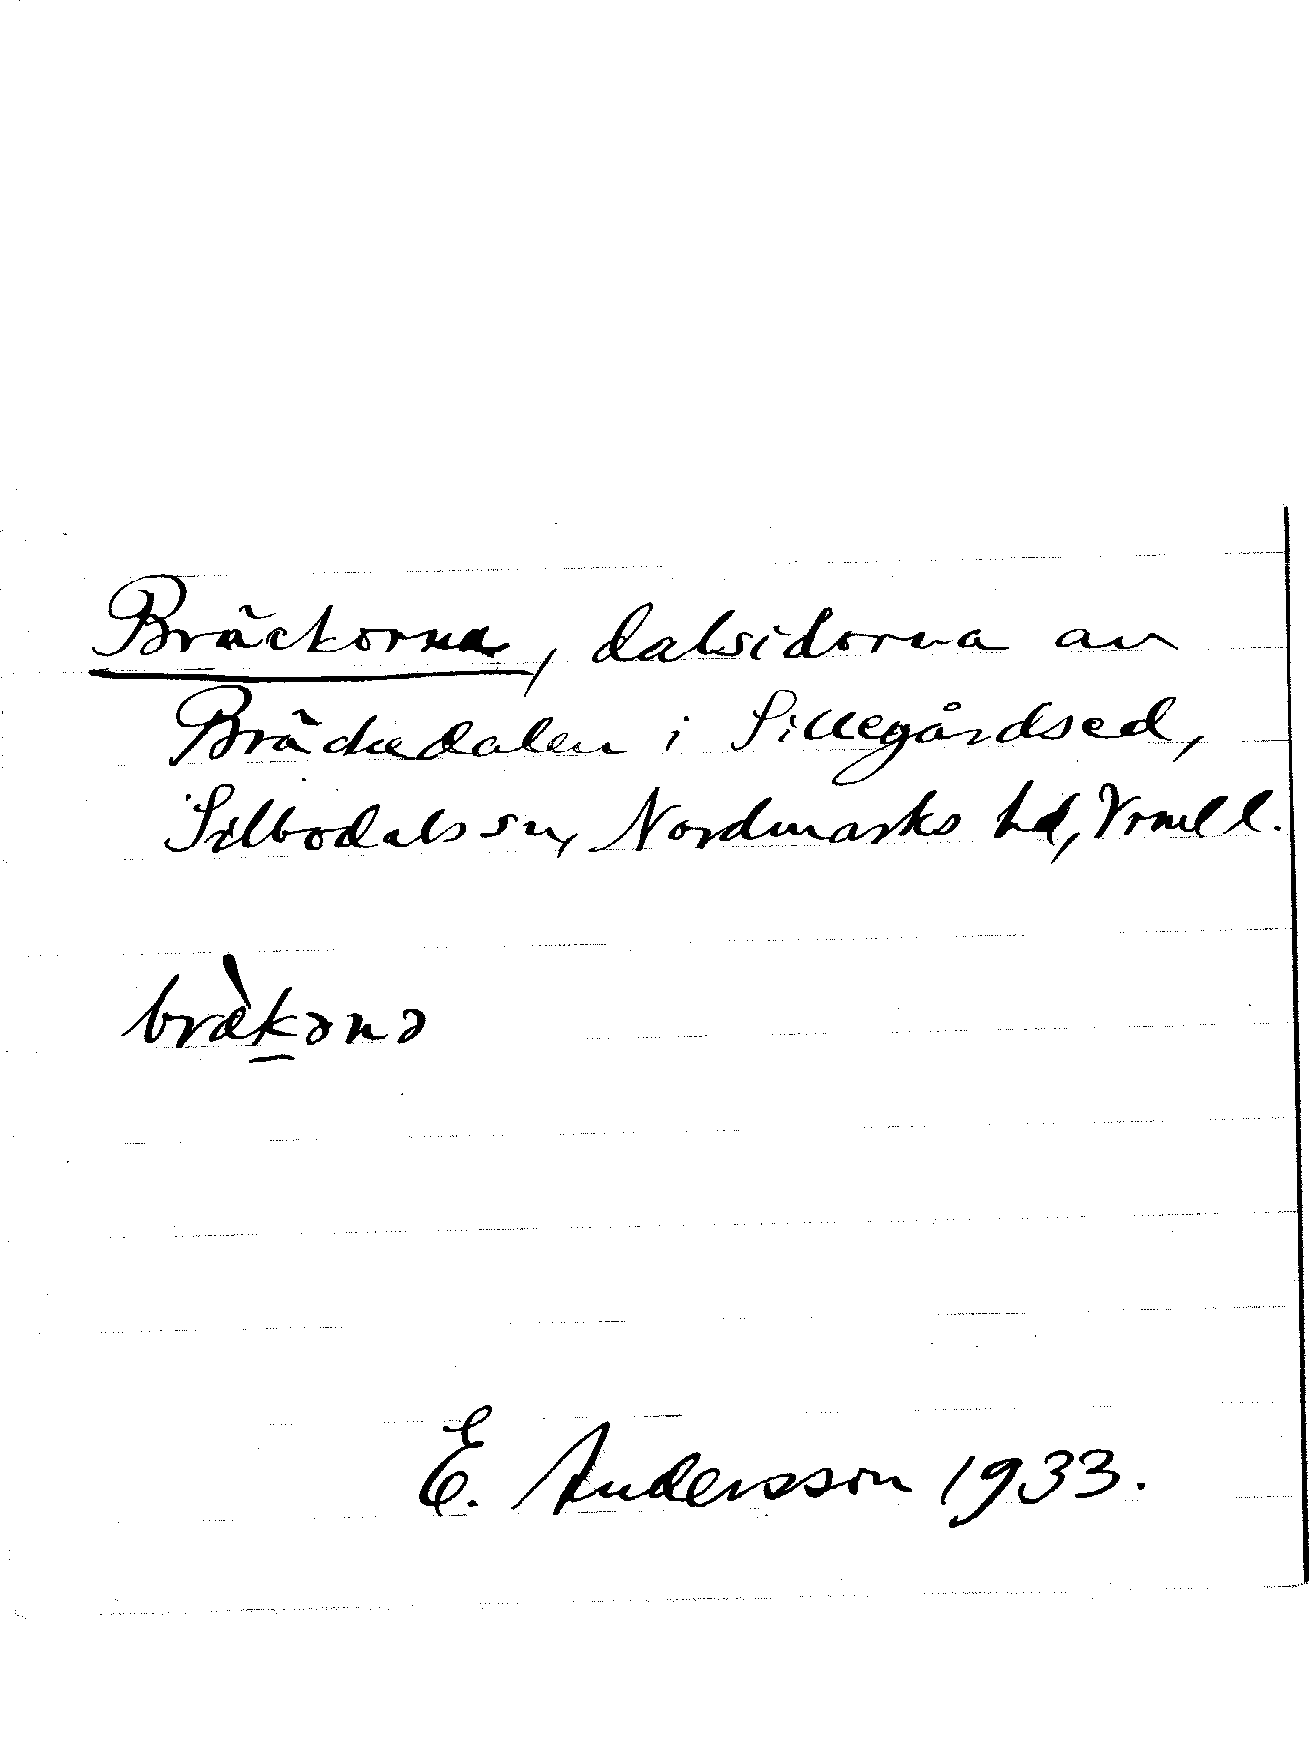 Bräckorna, dalsidorna av
Bräckedalen i Sillegårdsed,
Silbodals sn, Nordmarks hd, Vrml l.
bràkənə
E. Andersson 1933.